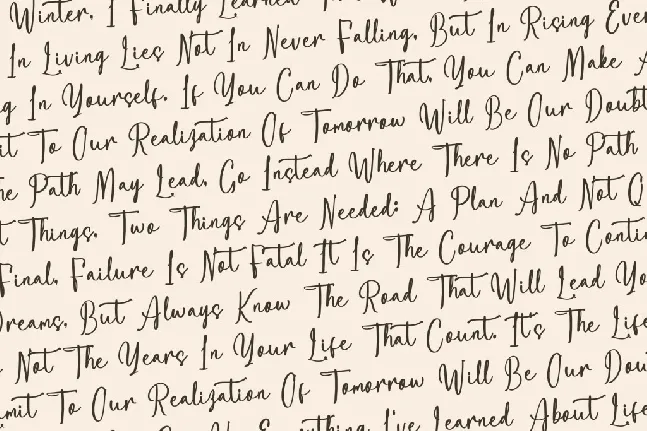 Winter. I Finally Learned
In Living Lies Not In Never Falling, But In Rising Ever
g In Yourself. If You Can Do That, You Can Make A
it To Our Realization Of Tomorrow Will Be Our Doubt
he Path May Lead, Go Instead Where There Is No Path
t Things, Two Things Are Needed: A Plan And Not Q
Final, Failure Is Not Fatal It Is The Courage To Contin
Dreams. But Always Know The Road That Will Lead Yo
Not The Years In Your Life That Count. It's The Life
mit To Our Realization Of Tomorrow Will Be Our Dou
Everything I've Learned About Life